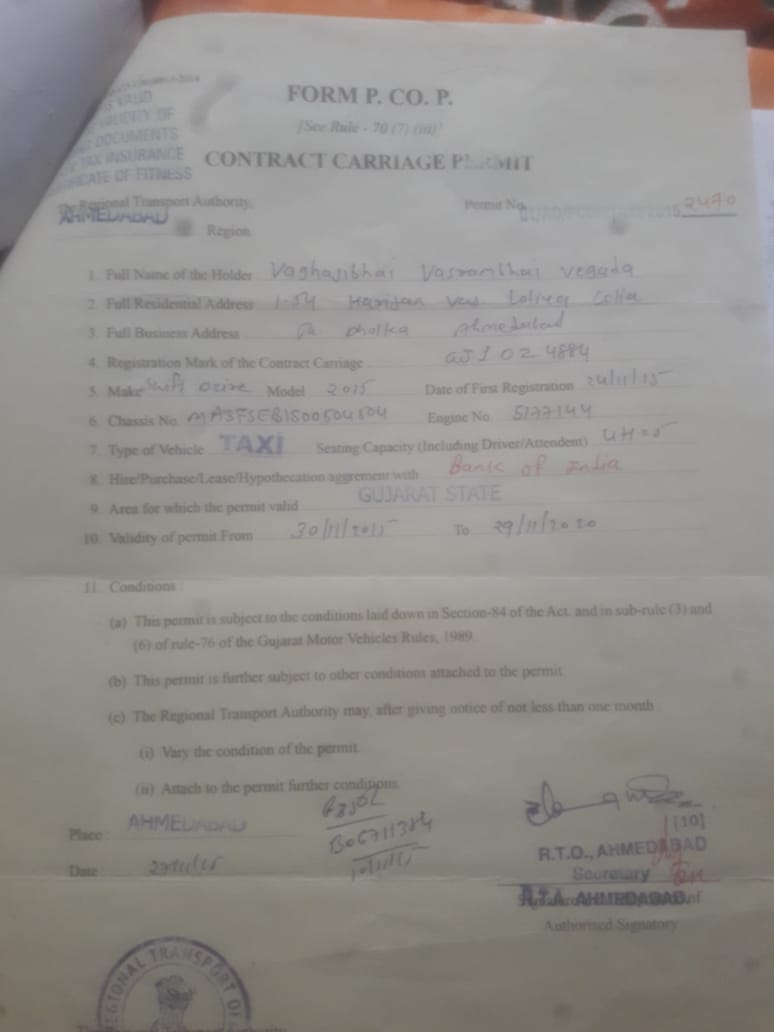 FORM P. CO. P.
[See Rule - 70 (7) (iii)]
S VALID
VALIDITY OF
DOCUMENTS
TAX INSURANCE
CATE OF FITNESS
CONTRACT CARRIAGE PERMIT
The Regional Transport Authority,
AHMEDABAD Region.
Permit No. 2470
1. Full Name of the Holder Vaghajibhai Vasrambhai Vegada
2. Full Residential Address 1-54 Harijan vas
3. Full Business Address Dholka Ahmedabad
4. Registration Mark of the Contract Carriage GJ1 4884
5. Make Swift Dzire Model 2015 Date of First Registration 24/11/15
6. Chassis No. MA3FSEB1S00504504 Engine No. 5177144
7. Type of Vehicle TAXI Seating Capacity (Including Driver/Attendent) 4+1=5
8. Hire/Purchase/Lease/Hypothecation aggrement with Bank of India
9. Area for which the permit valid GUJARAT STATE
10. Validity of permit From 30/11/2015 To 29/11/2020
11. Conditions :
(a) This permit is subject to the conditions laid down in Section-84 of the Act. and in sub-rule (3) and
(6) of rule-76 of the Gujarat Motor Vehicles Rules, 1989.
(b) This permit is further subject to other conditions attached to the permit.
(c) The Regional Transport Authority may, after giving notice of not less than one month
(i) Vary the condition of the permit.
(ii) Attach to the permit further conditions.
B06711384
Place : AHMEDABAD
[10]
R.T.O., AHMEDABAD
Date : 27/11/15
Secretary
R.T.A. AHMEDABAD.
Authorised Signatory
REGIONAL TRANSPORT OF